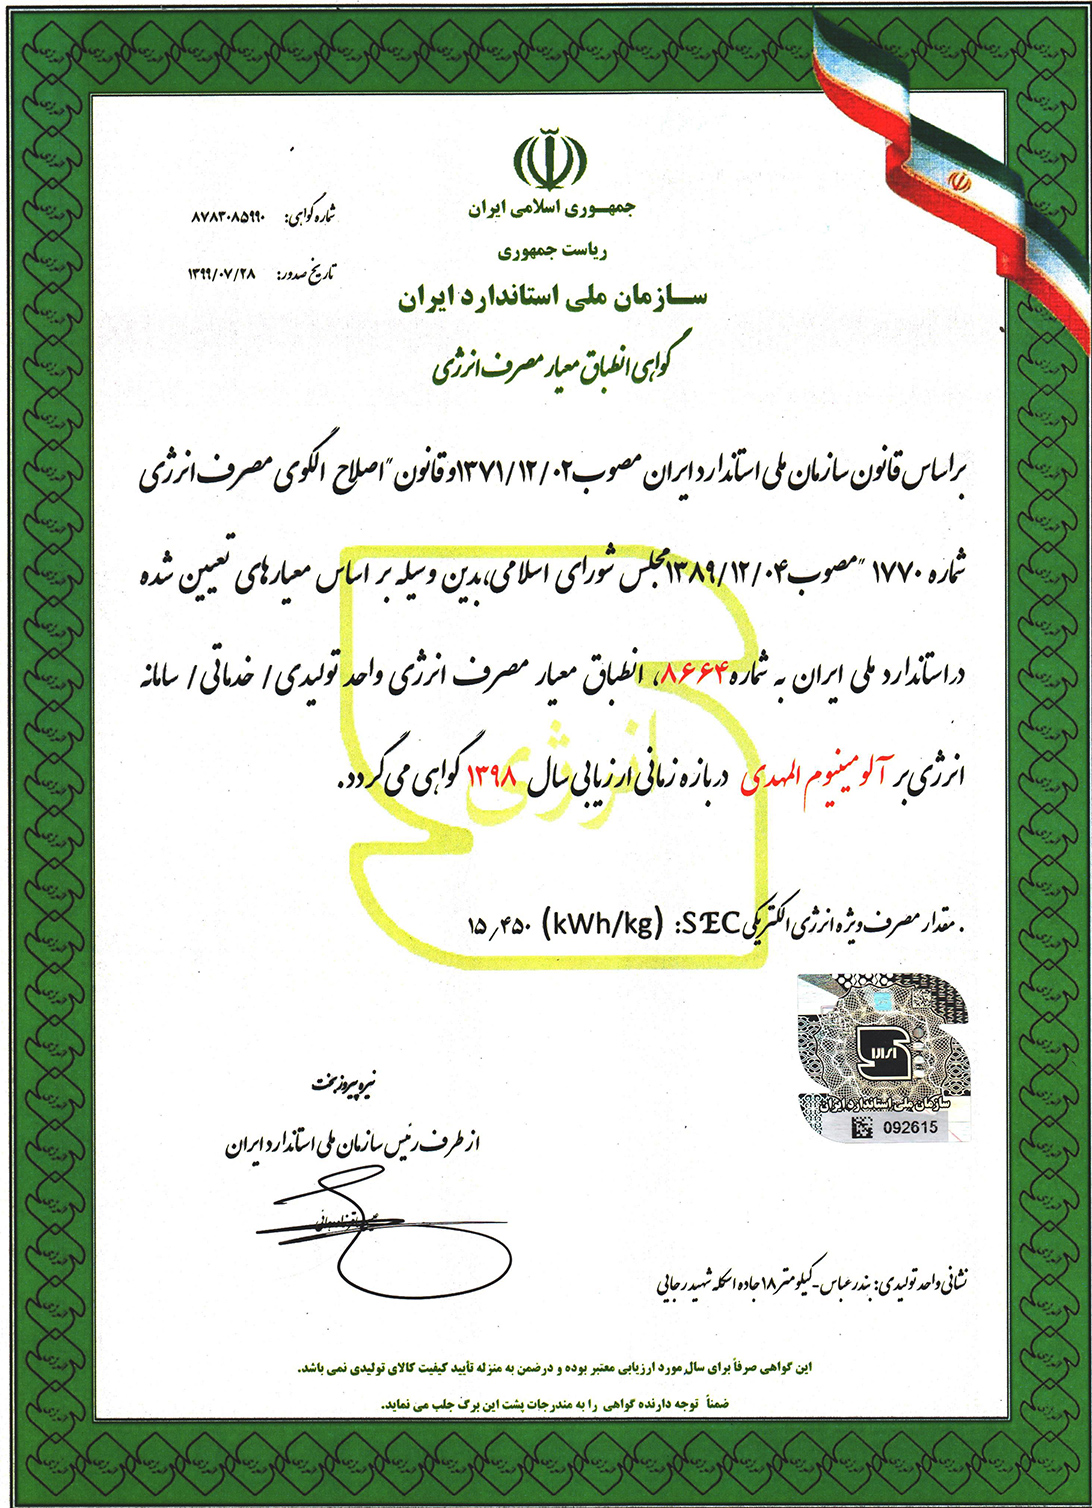 جمهوری اسلامی ایران
ریاست جمهوری
سازمان ملی استاندارد ایران
گواهی انطباق معیار مصرف انرژی
شماره گواهی: ۸۷۸۳۰۸۵۹۹۰
تاریخ صدور: ۱۳۹۹/۰۷/۲۸
بر اساس قانون سازمان ملی استاندارد ایران مصوب ۱۳۷۱/۱۲/۰۲ و قانون "اصلاح الگوی مصرف انرژی
شماره ۱۷۷۰ "مصوب ۱۳۸۹/۱۲/۰۴ مجلس شورای اسلامی، بدین وسیله بر اساس معیارهای تعیین شده
در استاندارد ملی ایران به شماره ۸۶۶۴، انطباق معیار مصرف انرژی واحد تولیدی / خدماتی / سامانه
انرژی بر آلومینیوم المهدی در بازه زمانی ارزیابی سال ۱۳۹۸ گواهی می گردد.
انرژی
. مقدار مصرف ویژه انرژی الکتریکی SEC: (kWh/kg) ۱۵٫۴۵۰
ایران
سازمان ملی استاندارد ایران
092615
نیره پیروزبخت
از طرف رئیس سازمان ملی استاندارد ایران
نشانی واحد تولیدی: بندرعباس-کیلومتر ۱۸ جاده اسکله شهید رجایی
این گواهی صرفاً برای سال مورد ارزیابی معتبر بوده و درضمن به منزله تأیید کیفیت کالای تولیدی نمی باشد.
ضمناً توجه دارنده گواهی را به مندرجات پشت این برگ جلب می نماید.